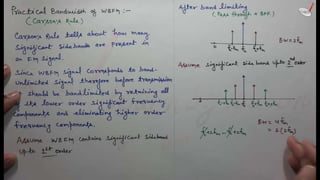 Practical Bandwidth of WBFM :-
(Carson's Rule)
Carson's Rule tells about how many
significant sidebands are present in
an FM signal.
Since WBFM signal corresponds to band-
unlimited signal therefore before transmission
it should be bandlimited by retaining all
its lower order significant frequency
components and eliminating higher order
frequency components.
Assume WBFM contains significant sideband
upto 1st order
After band limiting
(Pass through a BPF)
BW = 2fm
Assume significant side band upto 2nd order
BW = 4fm
= 2(2fm)